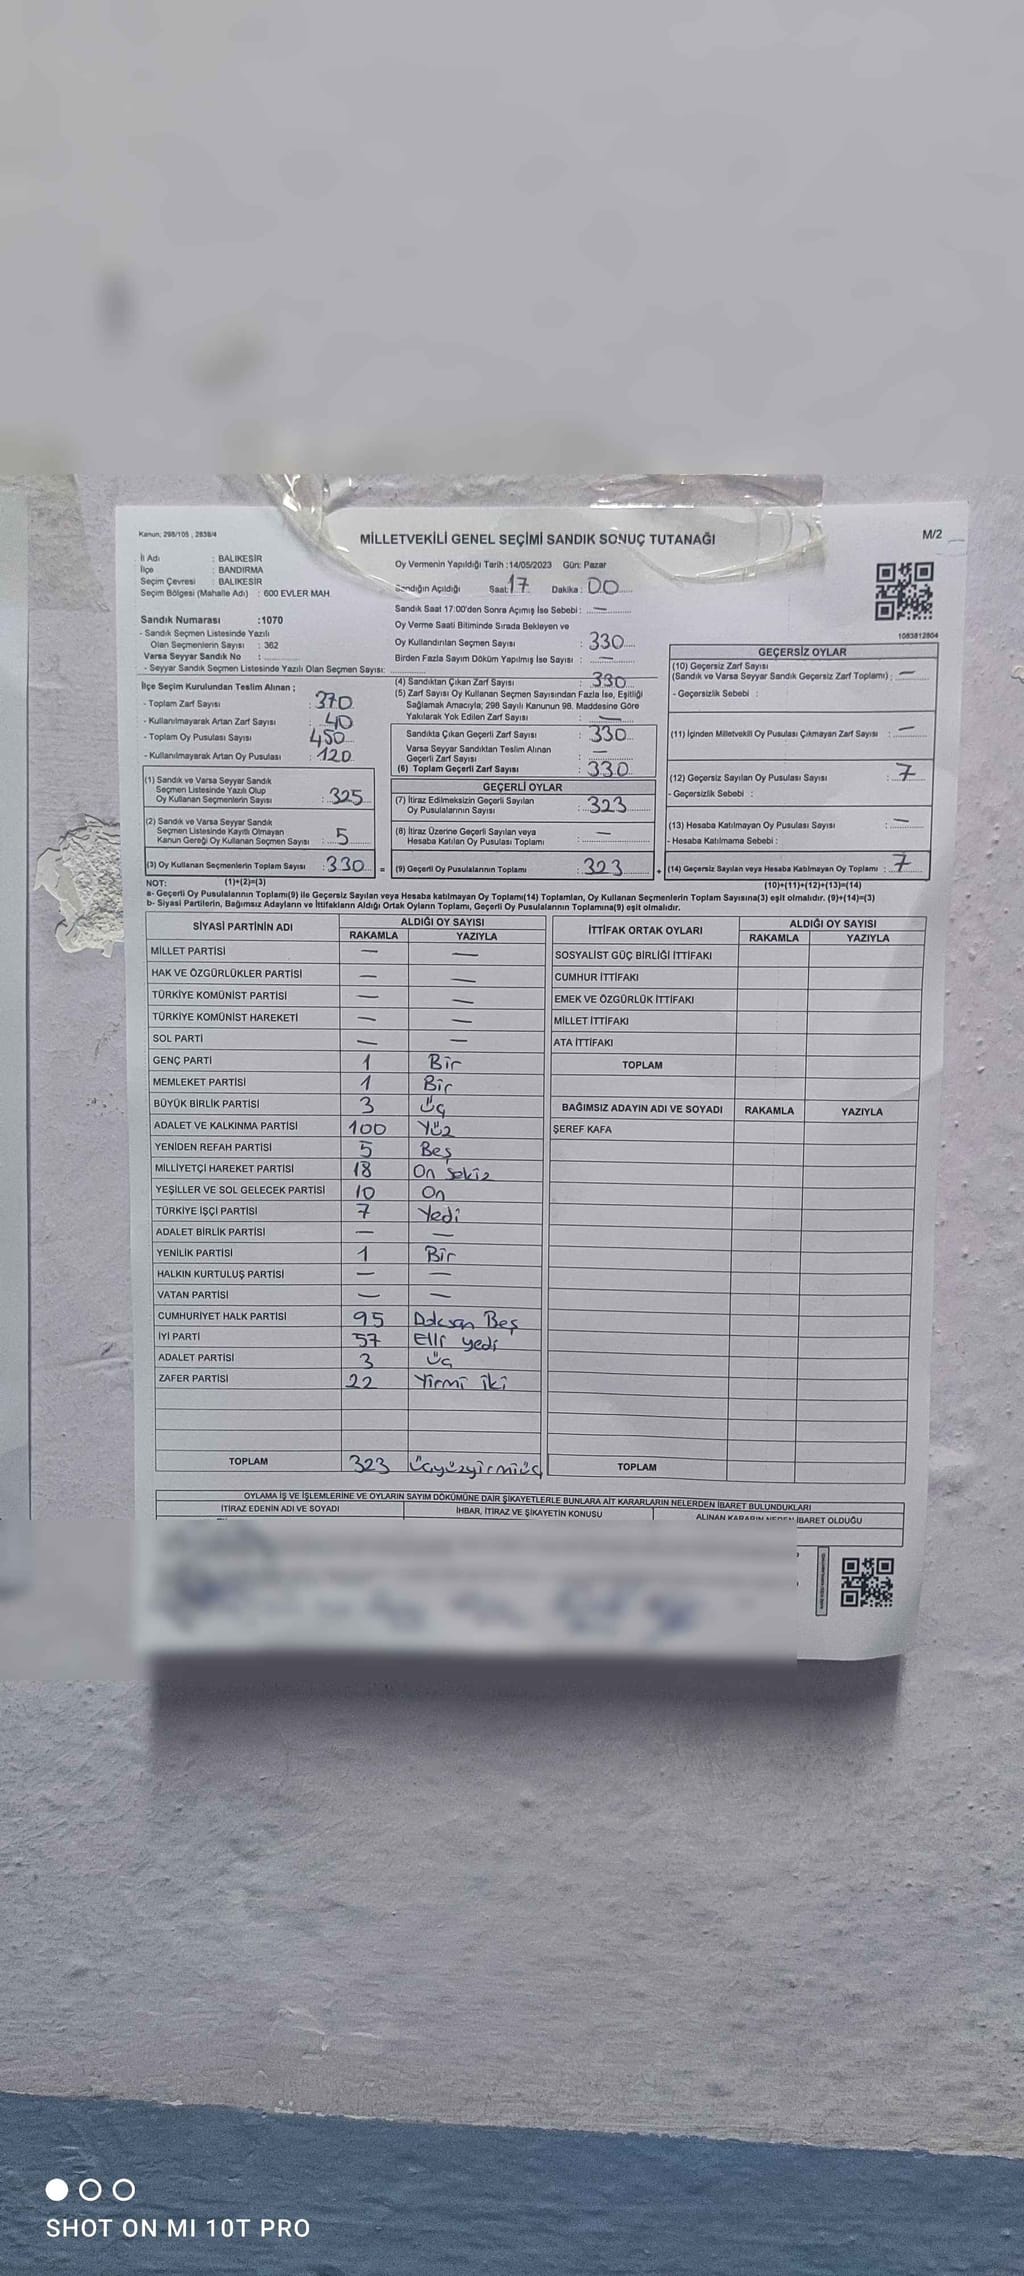 Kanun; 298/105 , 2839/4
MİLLETVEKİLİ GENEL SEÇİMİ SANDIK SONUÇ TUTANAĞI
M/2
İl Adı : BALIKESİR
İlçe : BANDIRMA
Seçim Çevresi : BALIKESİR
Seçim Bölgesi (Mahalle Adı) : 600 EVLER MAH.
Sandık Numarası :1070
- Sandık Seçmen Listesinde Yazılı
Olan Seçmenlerin Sayısı : 362
Varsa Seyyar Sandık No :
- Seyyar Sandık Seçmen Listesinde Yazılı Olan Seçmen Sayısı:
Oy Vermenin Yapıldığı Tarih :14/05/2023 Gün: Pazar
Sandığın Açıldığı Saat: 17 Dakika : 00
Sandık Saat 17:00'den Sonra Açımış İse Sebebi : —
Oy Verme Saati Bitiminde Sırada Bekleyen ve
Oy Kullandırılan Seçmen Sayısı : 330
Birden Fazla Sayım Döküm Yapılmış İse Sayısı : —
1083812804
İlçe Seçim Kurulundan Teslim Alınan ;
- Toplam Zarf Sayısı : 370
- Kullanılmayarak Artan Zarf Sayısı : 40
- Toplam Oy Pusulası Sayısı : 450
- Kullanılmayarak Artan Oy Pusulası : 120
(1) Sandık ve Varsa Seyyar Sandık
Seçmen Listesinde Yazılı Olup
Oy Kullanan Seçmenlerin Sayısı : 325
(2) Sandık ve Varsa Seyyar Sandık
Seçmen Listesinde Kayıtlı Olmayan
Kanun Gereği Oy Kullanan Seçmen Sayısı : 5
(3) Oy Kullanan Seçmenlerin Toplam Sayısı : 330 =
(1)+(2)=(3)
(4) Sandıktan Çıkan Zarf Sayısı : 330
(5) Zarf Sayısı Oy Kullanan Seçmen Sayısından Fazla İse, Eşitliği
Sağlamak Amacıyla; 298 Sayılı Kanunun 98. Maddesine Göre
Yakılarak Yok Edilen Zarf Sayısı : —
Sandıkta Çıkan Geçerli Zarf Sayısı : 330
Varsa Seyyar Sandıktan Teslim Alınan
Geçerli Zarf Sayısı : —
(6) Toplam Geçerli Zarf Sayısı : 330
GEÇERLİ OYLAR
(7) İtiraz Edilmeksizin Geçerli Sayılan
Oy Pusulalarının Sayısı : 323
(8) İtiraz Üzerine Geçerli Sayılan veya
Hesaba Katılan Oy Pusulası Toplamı : —
(9) Geçerli Oy Pusulalarının Toplamı : 323 +
GEÇERSİZ OYLAR
(10) Geçersiz Zarf Sayısı
(Sandık ve Varsa Seyyar Sandık Geçersiz Zarf Toplamı) : —
- Geçersizlik Sebebi :
(11) İçinden Milletvekili Oy Pusulası Çıkmayan Zarf Sayısı : —
(12) Geçersiz Sayılan Oy Pusulası Sayısı : 7
- Geçersizlik Sebebi :
(13) Hesaba Katılmayan Oy Pusulası Sayısı : —
- Hesaba Katılmama Sebebi :
(14) Geçersiz Sayılan veya Hesaba Katılmayan Oy Toplamı : 7
(10)+(11)+(12)+(13)=(14)
NOT:
a- Geçerli Oy Pusulalarının Toplamı(9) ile Geçersiz Sayılan veya Hesaba katılmayan Oy Toplamı(14) Toplamları, Oy Kullanan Seçmenlerin Toplam Sayısına(3) eşit olmalıdır. (9)+(14)=(3)
b- Siyasi Partilerin, Bağımsız Adayların ve İttifakların Aldığı Ortak Oyların Toplamı, Geçerli Oy Pusulalarının Toplamına(9) eşit olmalıdır.
SİYASİ PARTİNİN ADI ALDIĞI OY SAYISI
RAKAMLA YAZIYLA
MİLLET PARTİSİ — —
HAK VE ÖZGÜRLÜKLER PARTİSİ — —
TÜRKİYE KOMÜNİST PARTİSİ — —
TÜRKİYE KOMÜNİST HAREKETİ — —
SOL PARTİ — —
GENÇ PARTİ 1 Bir
MEMLEKET PARTİSİ 1 Bir
BÜYÜK BİRLİK PARTİSİ 3 Üç
ADALET VE KALKINMA PARTİSİ 100 Yüz
YENİDEN REFAH PARTİSİ 5 Beş
MİLLİYETÇİ HAREKET PARTİSİ 18 On sekiz
YEŞİLLER VE SOL GELECEK PARTİSİ 10 On
TÜRKİYE İŞÇİ PARTİSİ 7 Yedi
ADALET BİRLİK PARTİSİ — —
YENİLİK PARTİSİ 1 Bir
HALKIN KURTULUŞ PARTİSİ — —
VATAN PARTİSİ — —
CUMHURİYET HALK PARTİSİ 95 Doksan Beş
İYİ PARTİ 57 Elli yedi
ADALET PARTİSİ 3 Üç
ZAFER PARTİSİ 22 Yirmi iki
TOPLAM 323 Üçyüzyirmiüç
İTTİFAK ORTAK OYLARI ALDIĞI OY SAYISI
RAKAMLA YAZIYLA
SOSYALİST GÜÇ BİRLİĞİ İTTİFAKI
CUMHUR İTTİFAKI
EMEK VE ÖZGÜRLÜK İTTİFAKI
MİLLET İTTİFAKI
ATA İTTİFAKI
TOPLAM
BAĞIMSIZ ADAYIN ADI VE SOYADI RAKAMLA YAZIYLA
ŞEREF KAFA
TOPLAM
OYLAMA İŞ VE İŞLEMLERİNE VE OYLARIN SAYIM DÖKÜMÜNE DAİR ŞİKAYETLERLE BUNLARA AİT KARARLARIN NELERDEN İBARET BULUNDUKLARI
İTİRAZ EDENİN ADI VE SOYADI İHBAR, İTİRAZ VE ŞİKAYETİN KONUSU ALINAN KARARIN NEDEN İBARET OLDUĞU
SHOT ON MI 10T PRO